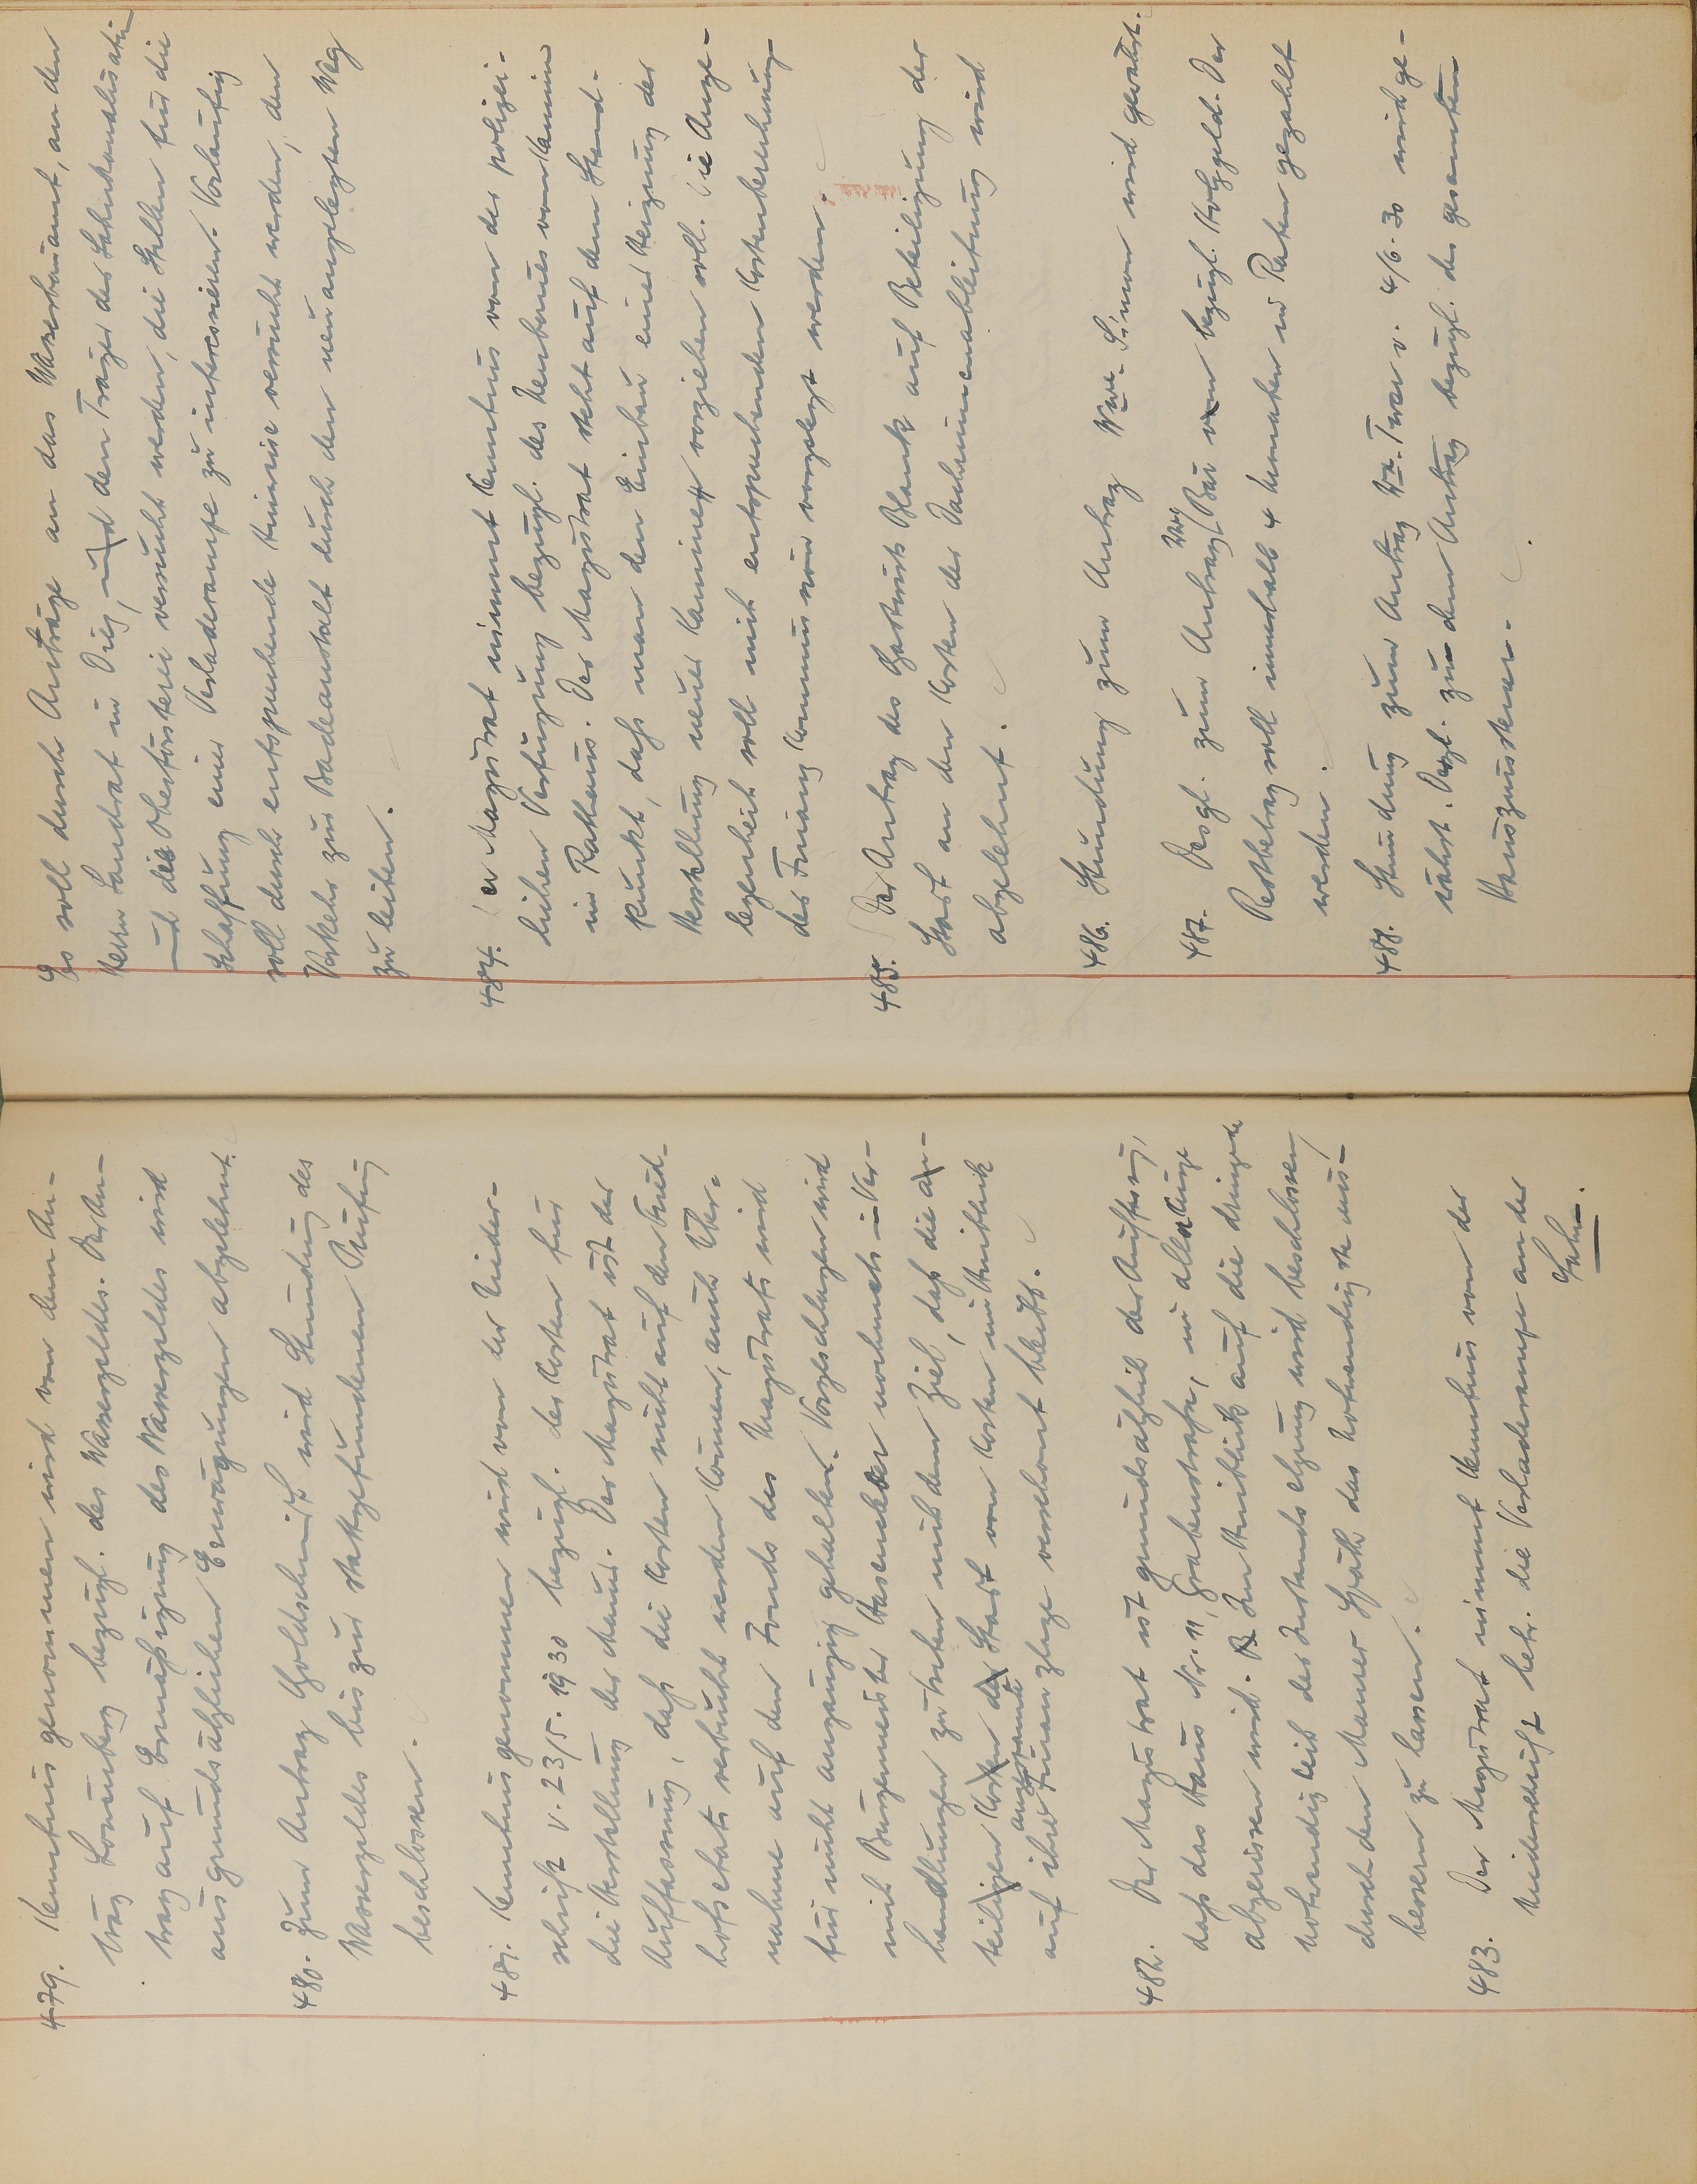 479. Kenntnis genommen wird von dem An-
trag Lounberg bezügl. des Wassergeldes. Der An-
trag auf Ermäßigung des Wassergeldes wird
aus grundsätzlichen Erwägungen abgelehnt.
480. Zum Antrag Goldschmidt wird Stundung des
Wassergeldes bis zur stattgefundenen Prüfung
beschlossen.
481. Kenntnis genommen wird von der Nieder-
schrift v. 23/5. 1930 bezügl. der Kosten für
die Herstellung der Mauer. Der Magistrat ist der
Auffassung, daß die Kosten nicht auf den Fried-
hofsetats verbucht werden können, auch Über-
nahme auf den Fonds des Magistrats wird
für nicht angängig gehalten. Vorgeschlagen wird
mit Bürgermeister nochmals in Ver-
handlungen zu treten mit dem Ziel, daß die an-
teiligen Kosten der Stadt von Kosten im Hinblick
auf ihre angespannte Finanzlage verschont bleibt.
482. Der Magistrat ist grundsätzlich der Auffassung,
daß das Haus Nr. 11, Grabenstraße, in allernächster
abgerissen wird. Im Hinblick auf die dringende
Notwendigkeit der Instandsetzung wird beschlossen,
durch den Maurer Späth das Notwendigste aus-
bessern zu lassen.
483. Der Magistrat nimmt Kenntnis von der
Niederschrift betr. die Verladerampe an der
Lahn.
Es soll durch Anträge an das Wasserbauamt, an den
Herrn Landrat in Diez, und den Träger der Lahnkanalisation
und die Oberförsterei versucht werden, die Stellen für die
Schaffung einer Verladerampe zu interessieren. Vorläufig
soll durch entsprechende Hinweise versucht werden, den
Verkehr zur Badeanstalt durch den neu angelegten Weg
zu leiten.
484. Der Magistrat nimmt Kenntnis von der polizei-
lichen Verfügung bezügl. des Neubaues vom Kamine
im Rathaus. Der Magistrat steht auf dem Stand-
punkt, daß man den Einbau einer Heizung der
Herstellung neuer Kamine vorziehen soll. Die Ange-
legenheit soll mit entsprechenden Kostenberechnung
der Finanzkommission vorgelegt werden.
485. Der Antrag des Gastwirts Blank auf Beteiligung der
Stadt an den Kosten der Dachrinnenableitung wird
abgelehnt.
486. Stundung zum Antrag Wwe. Simon wird gewährt.
487. Desgl. zum Antrag Bär bezügl. Holzgeld. Der
Restbetrag soll innerhalb 4 Monaten in Raten gezahlt
werden.
488. Stundung zum Antrag v. 4/6. 30 wird ge-
währt. Desgl. zu dem Antrag bezügl. der gesamten
Hauszinssteuer.